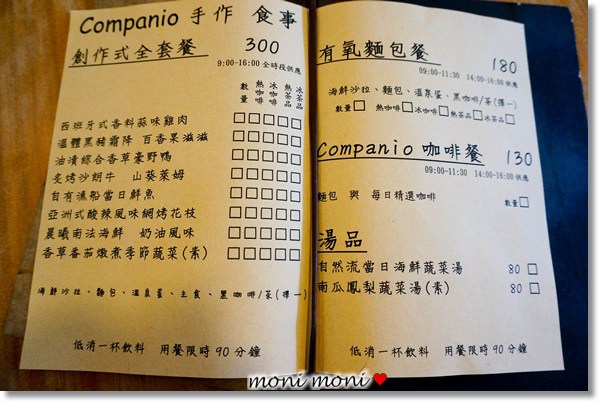 Companio 手作 食事
創作式全套餐 300
9:00-16:00 全時段供應
數量 熱咖啡 冰咖啡 熱茶品 冰茶品
西班牙式香料蒜味雞肉
溫體黑豬霜降 百香果滋滋
油漬綜合香草豪野鴨
炙烤沙朗牛 山葵萊姆
自有漁船當日鮮魚
亞洲式酸辣風味網烤花枝
晨曦南法海鮮 奶油風味
香草番茄燉煮季節蔬菜(素)
海鮮沙拉、麵包、溫泉蛋、主食、黑咖啡/茶(擇一)
低消一杯飲料 用餐限時90分鐘
有氧麵包餐 180
09:00-11:30 14:00-16:00供應
海鮮沙拉、麵包、溫泉蛋、黑咖啡/茶(擇一)
數量 熱咖啡 冰咖啡 熱茶品 冰茶品
Companio 咖啡餐 130
09:00-11:30 14:00-16:00供應
麵包 與 每日精選咖啡 數量
湯品
自然流當日海鮮蔬菜湯 80
南瓜鳳梨蔬菜湯(素) 80
低消一杯飲料 用餐限時90分鐘
moni moni